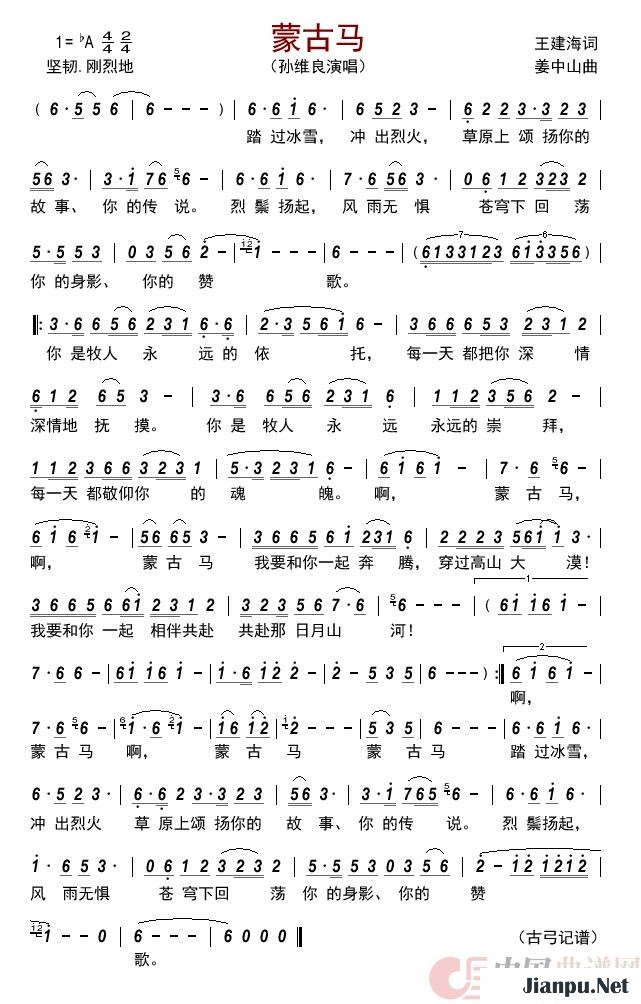 蒙古马
1=♭A 4/4 2/4
王建海词
坚韧.刚烈地
（孙维良演唱）
姜中山曲
( 6·5 5 6 | 6 - - - ) | 6·6 i 6· | 6 5 2 3 - | 6 2 2 3 3·6 |
踏 过冰雪， 冲 出烈火， 草原上 颂 扬你的
5 6 3· | 3·i 7 6 5 6· | 6·6 i 6· | 7·6 5 3· | 0 6 1 2 3 2 3 |
故 事、 你 的传 说。 烈 鬃 扬起， 风 雨无 惧 苍穹下 回 荡
5·5 5 3 | 0 3 5 6 2 - | i 2 i - | 6 - - - | ( 6 1 3 3 1 2 3 6 i 3 3 5 6 |
你 的身影、 你的 赞 歌。
3·6 6 5 6 2 3 1 6·6 | 2·3 5 6 i 6 - | 3 6 6 6 5 3 2 3 1 2 |
你 是牧人 永 远的 依 托， 每一天 都把你 深 情
6 1 2 6 5 3 - | 3·6 6 5 6 2 3 1 6 | 1 1 2 1 2 3 5 6 2 - |
深情地 抚 摸。 你 是 牧人 永 远 永远的 崇 拜，
1 1 2 3 6 6 3 2 3 1 | 5·3 2 3 1 6 - | 6 i 6 i - | 7·6 5 6 - |
每一天 都敬仰你 的 魂 魄。 啊， 蒙 古 马，
6 i 6 2 i - | 5 6 6 5 3 - | 3 6 6 5 6 i 2 3 1 6 | 2 2 2 3 5 6 i i 3· |
啊， 蒙 古 马 我要和你一起 奔 腾， 穿过高山 大 漠！
3 6 6 5 6 6 i 2 3 5 5 | 3 2 3 2 5 7·6 | 5 6 - - | ( 6 i i 6 i |
我要和你 一起 相伴共赴 共赴那 日月山 河！
7·6 6 - | 6 i i 6 i | 7·6 6 - | i·6 i 2 2 | 2 - 5 3 5 | 6 - - - ) :| 6 i 6 i |
啊，
7·5 6 - | 6 i·6 2 i - | i 6 i 2 | i 2 - - | 5 3 5 | 6 - - - | 6·6 i 6· |
蒙 古 马 啊， 蒙 古 马 蒙 古 马 踏 过冰雪，
6·5 2 3· | 6·6 2 2 3·3·6 | 5 6 3· | 3·i 7 6 5 5 6· | 6·6 i 6· |
冲 出烈火 草 原上颂 扬你的 故 事、 你 的传 说。 烈 鬃扬起，
i·6 5 3· | 0 6 1 2 3 2 3 | 5·5 5 3 0 3 5 6 | 2 - i 2 i 2 i 2 |
风 雨无惧 苍 穹下回 荡 你 的身影、你的 赞
i 2 i 6· 0 0 | 6 - - - | 6 0 0 0 ‖
歌。
（古弓记谱）
Jianpu.Net